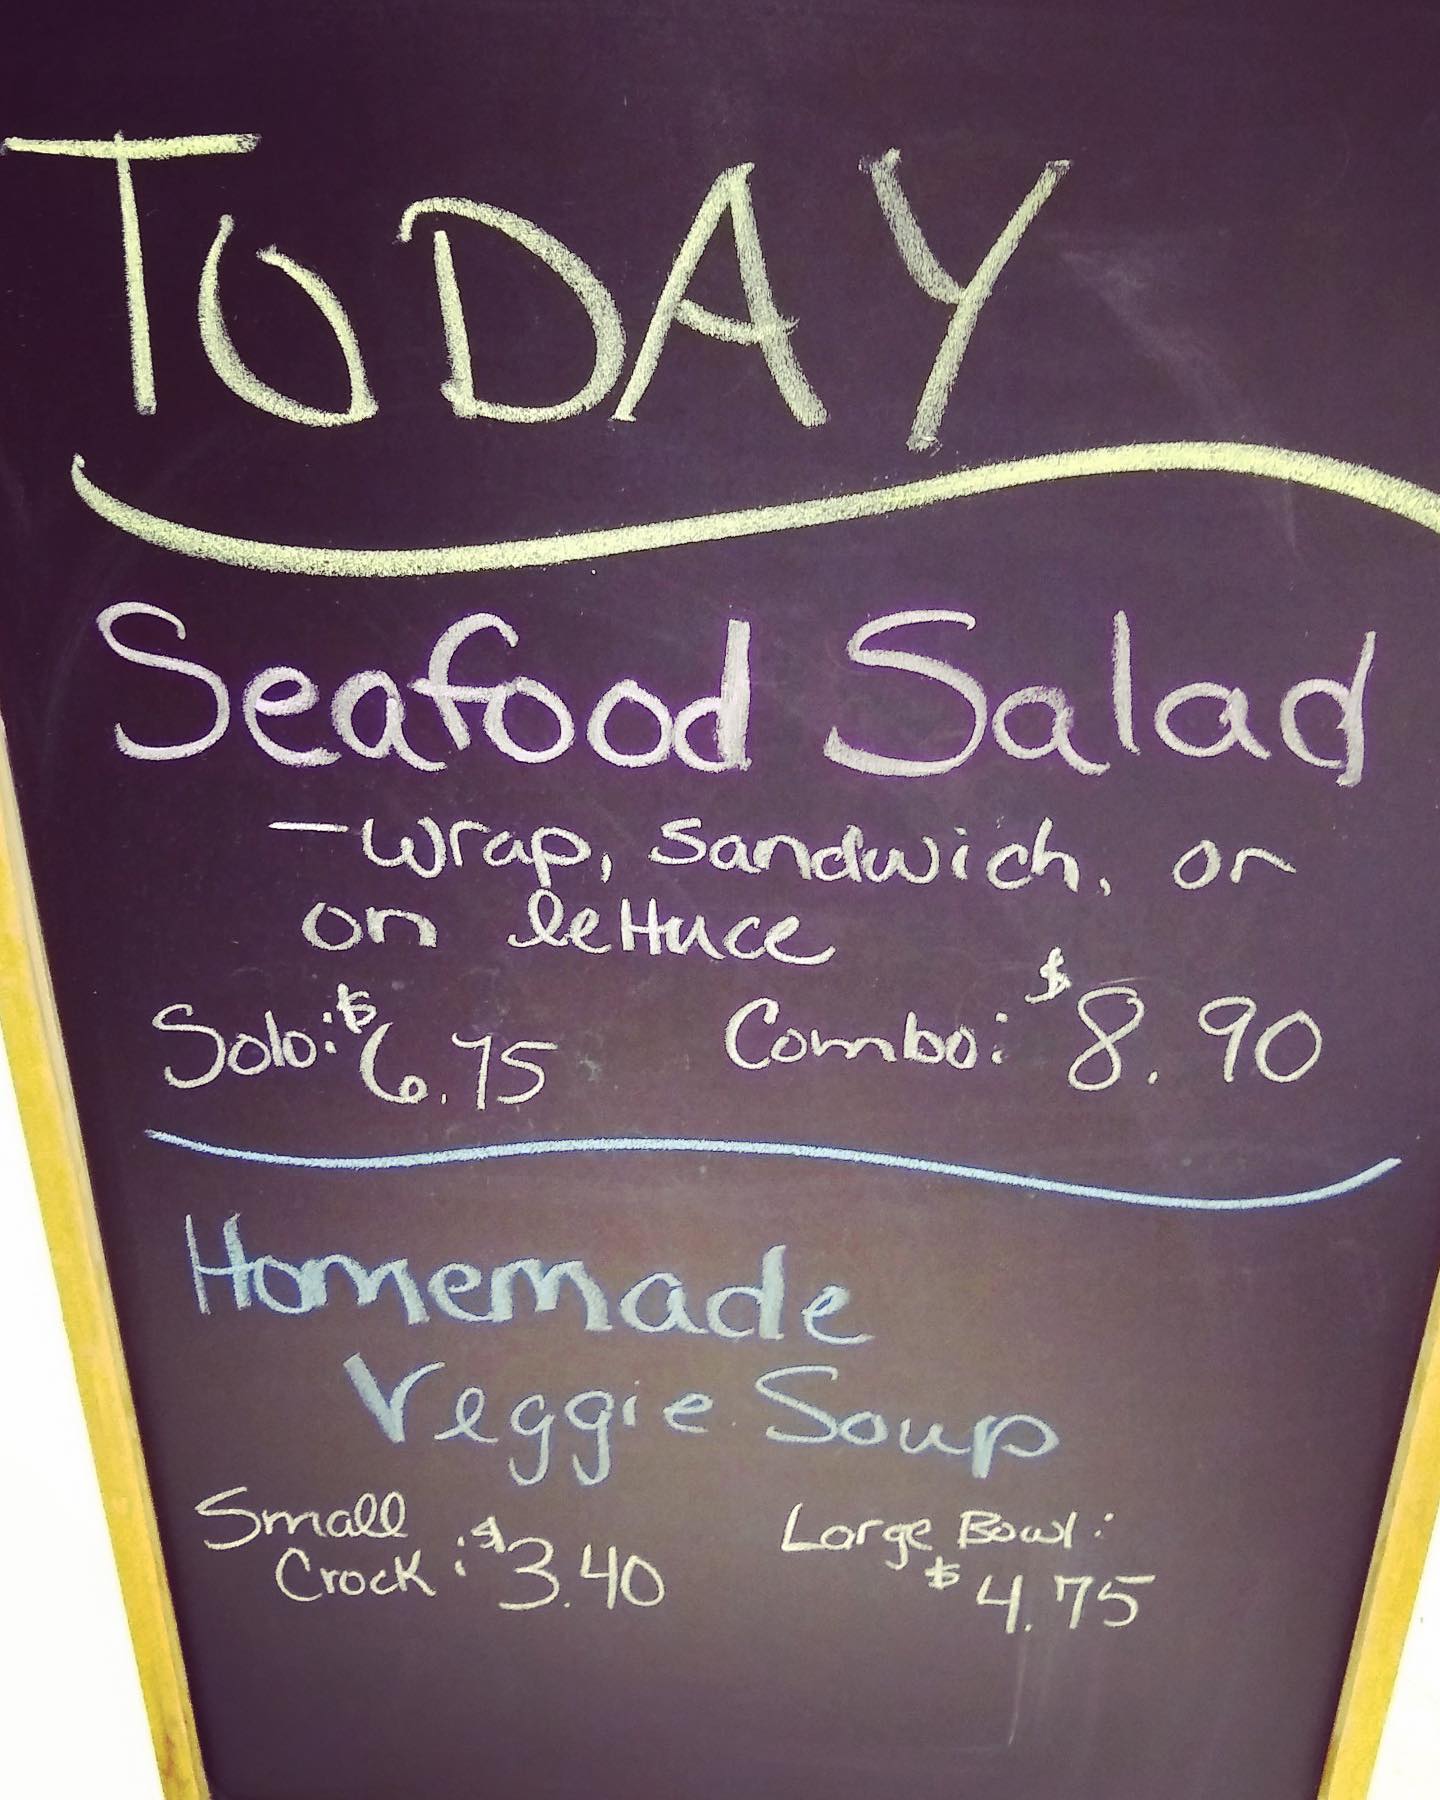 TODAY
Seafood Salad
- wrap, sandwich, or
on lettuce
Solo: $6.75 Combo: $8.90
Homemade
Veggie Soup
Small Crock: $3.40 Large Bowl: $4.75